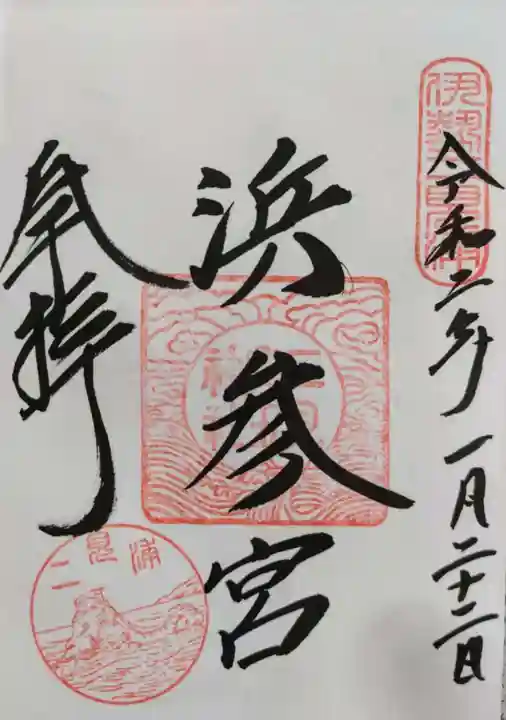 伊勢二見浦
令和二年一月二十二日
浜参宮
二見
神社
奉拝
二見浦